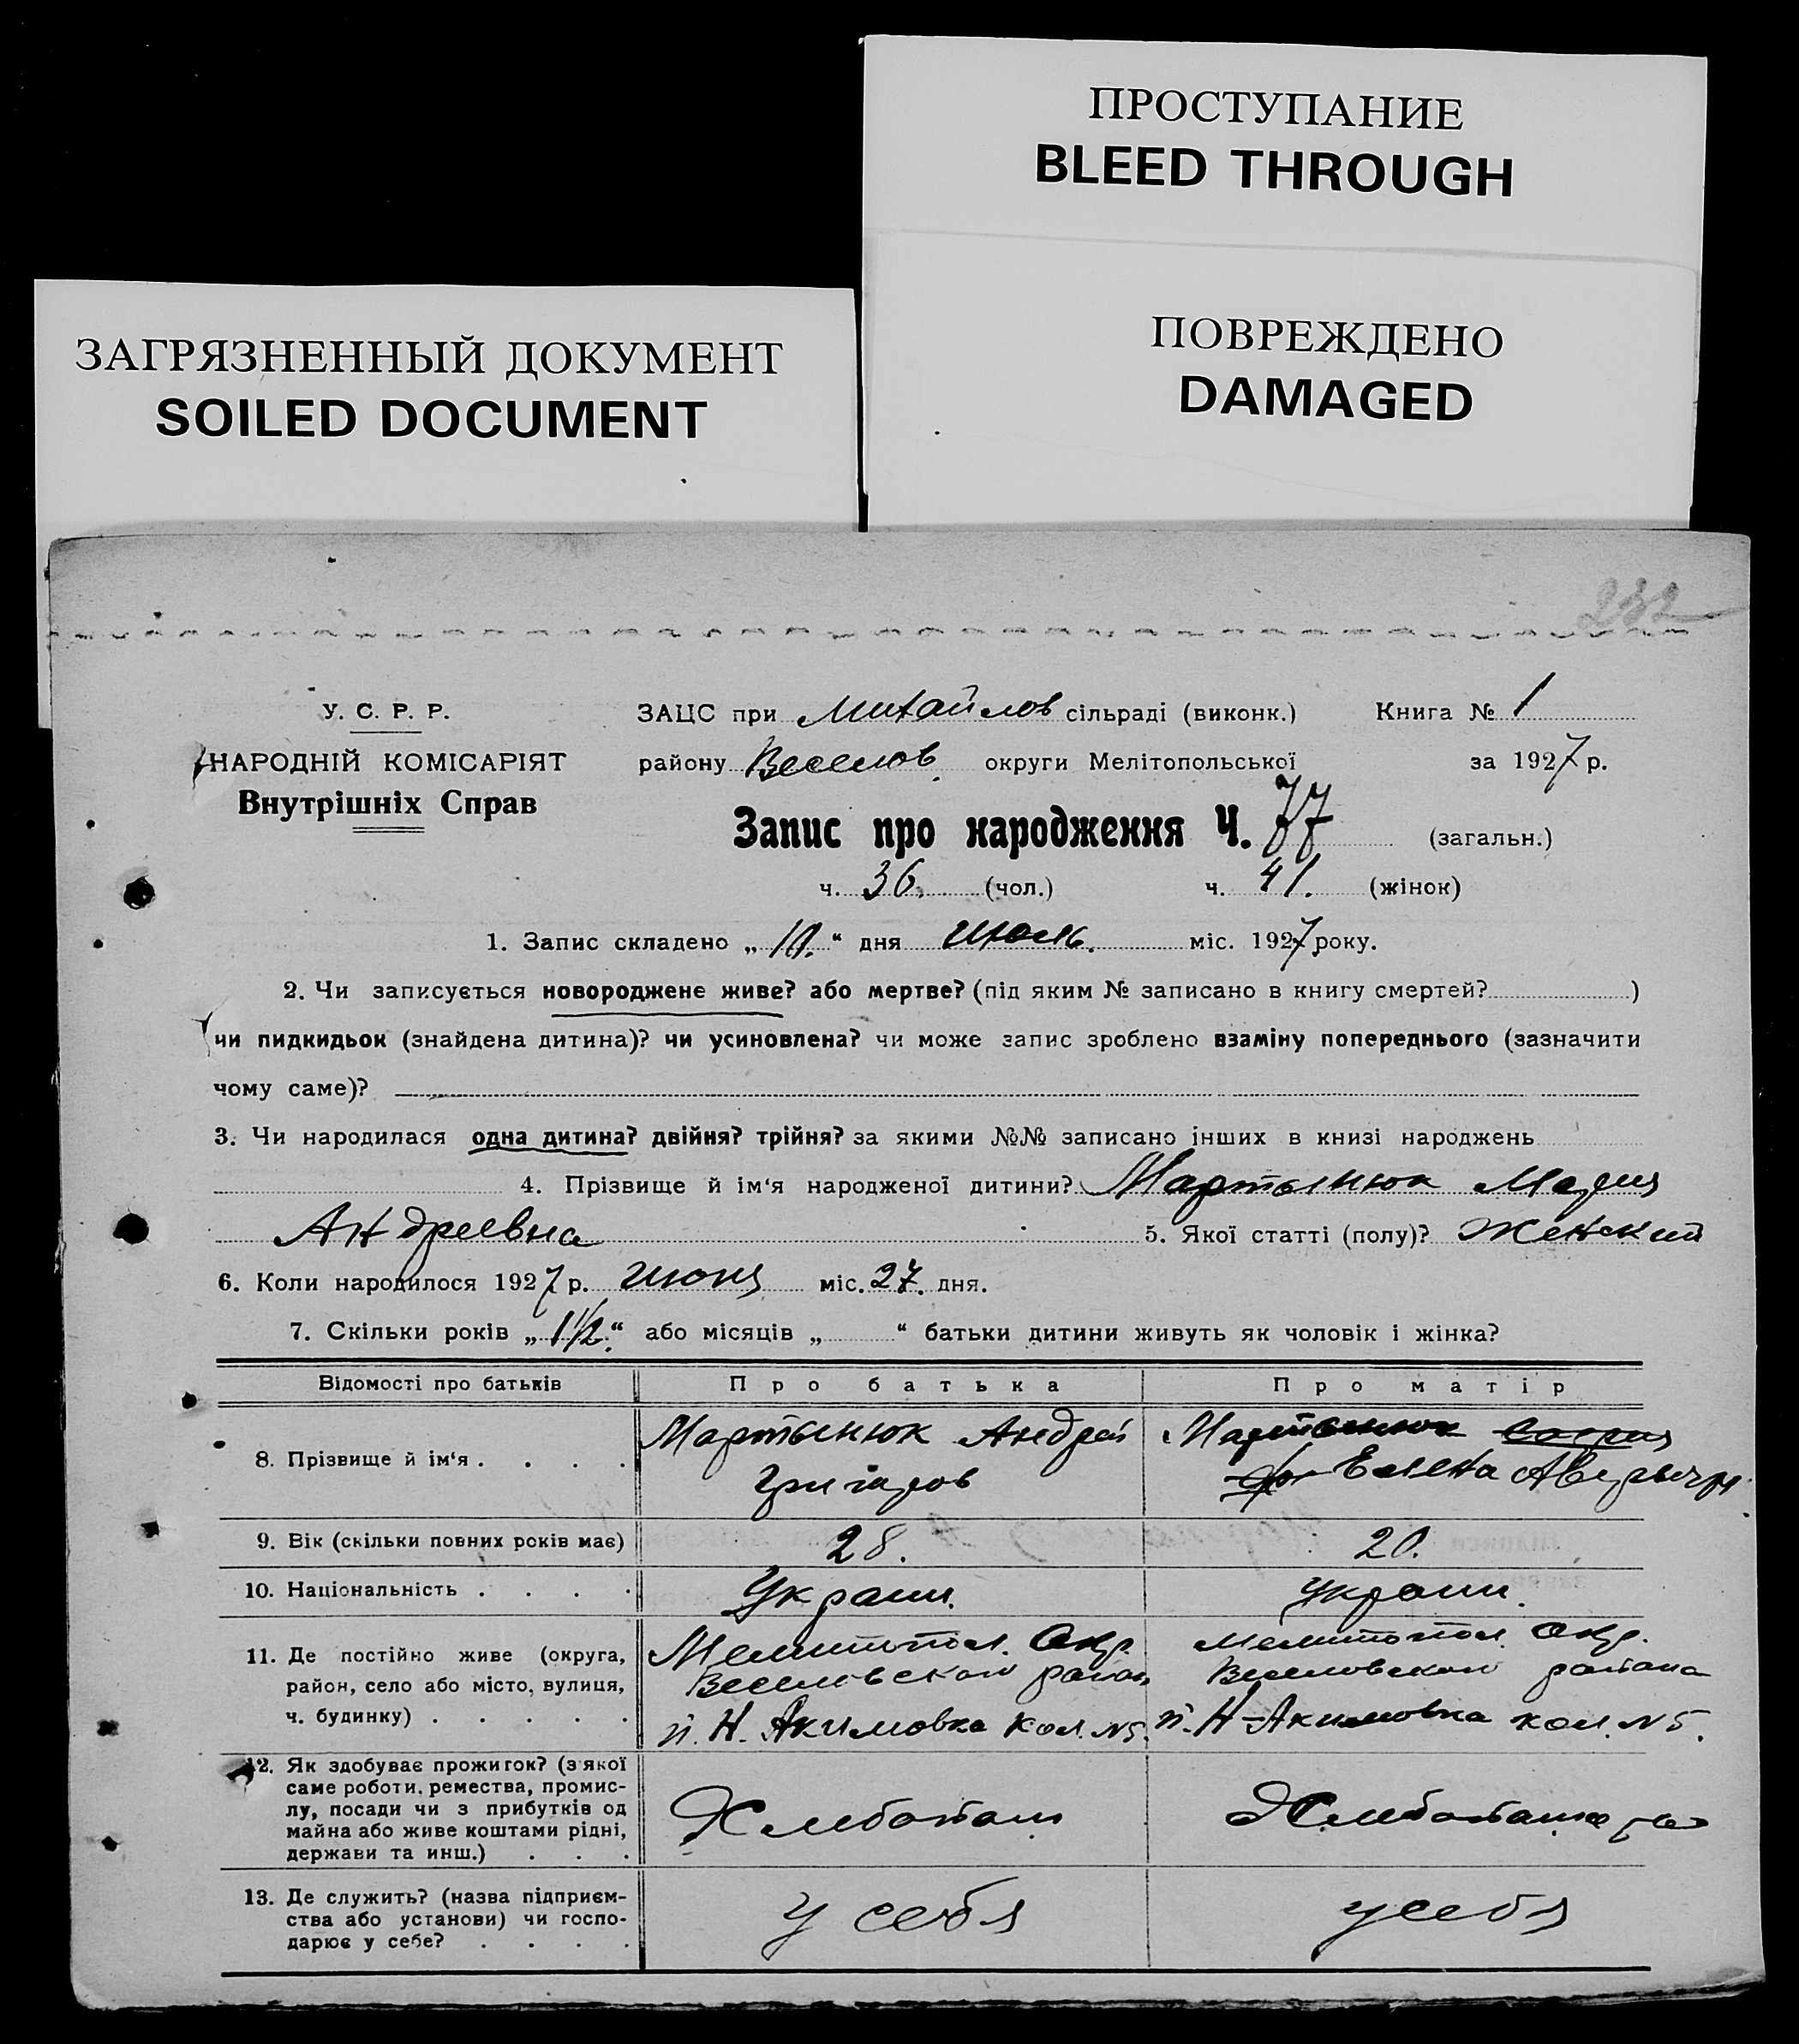 ПРОСТУПАНИЕ
BLEED THROUGH
ПОВРЕЖДЕНО
DAMAGED
ЗАГРЯЗНЕННЫЙ ДОКУМЕНТ
SOILED DOCUMENT
232
У. С. Р. Р.
НАРОДНІЙ КОМІСАРІЯТ
Внутрішніх Справ
ЗАЦС при Михайлов сільраді (виконк.) Книга № 1
району Веселов. округи Мелітопольської за 1927 р.
Запис про народження Ч. 77 (загальн.)
ч. 36. (чол.) ч. 41. (жінок)
1. Запис складено „10.“ дня Июль. міс. 1927 року.
2. Чи записується новороджене живе? або мертве? (під яким № записано в книгу смертей? )
чи пидкидьок (знайдена дитина)? чи усиновлена? чи може запис зроблено взаміну попереднього (зазначити
чому саме)?
3. Чи народилася одна дитина? двійня? трійня? за якими №№ записано інших в книзі народжень
4. Прізвище й ім‘я народженої дитини? Мартынюк Мария
Андреевна 5. Якої статті (полу)? Женский
6. Коли народилося 1927 р. июня міс. 27. дня.
7. Скільки років „1½.“ або місяців „ “ батьки дитини живуть як чоловік і жінка?
Відомості про батьків Про батька Про матір
8. Прізвище й ім‘я . . . . Мартынюк Андрей Мартынюк
Григоров Елена
9. Вік (скільки повних років має) 28. 20.
10. Національність . . . . Украин. Украин.
11. Де постійно живе (округа, Мелитопол. Окр. Мелитопол. Окр.
район, село або місто, вулиця, Веселовского район Веселовского района
ч. будинку) . . . . . п. Н. Акимовка кол. N5. п. Н-Акимовка кол. N5.
12. Як здобуває прожиток? (з якої
саме роботи, ремества, промис-
лу, посади чи з прибутків од Хлебопаш
майна або живе коштами рідні,
держави та инш.) . . .
13. Де служить? (назва підприєм-
ства або установи) чи госпо- у себя у себя
дарює у себе? . . . .